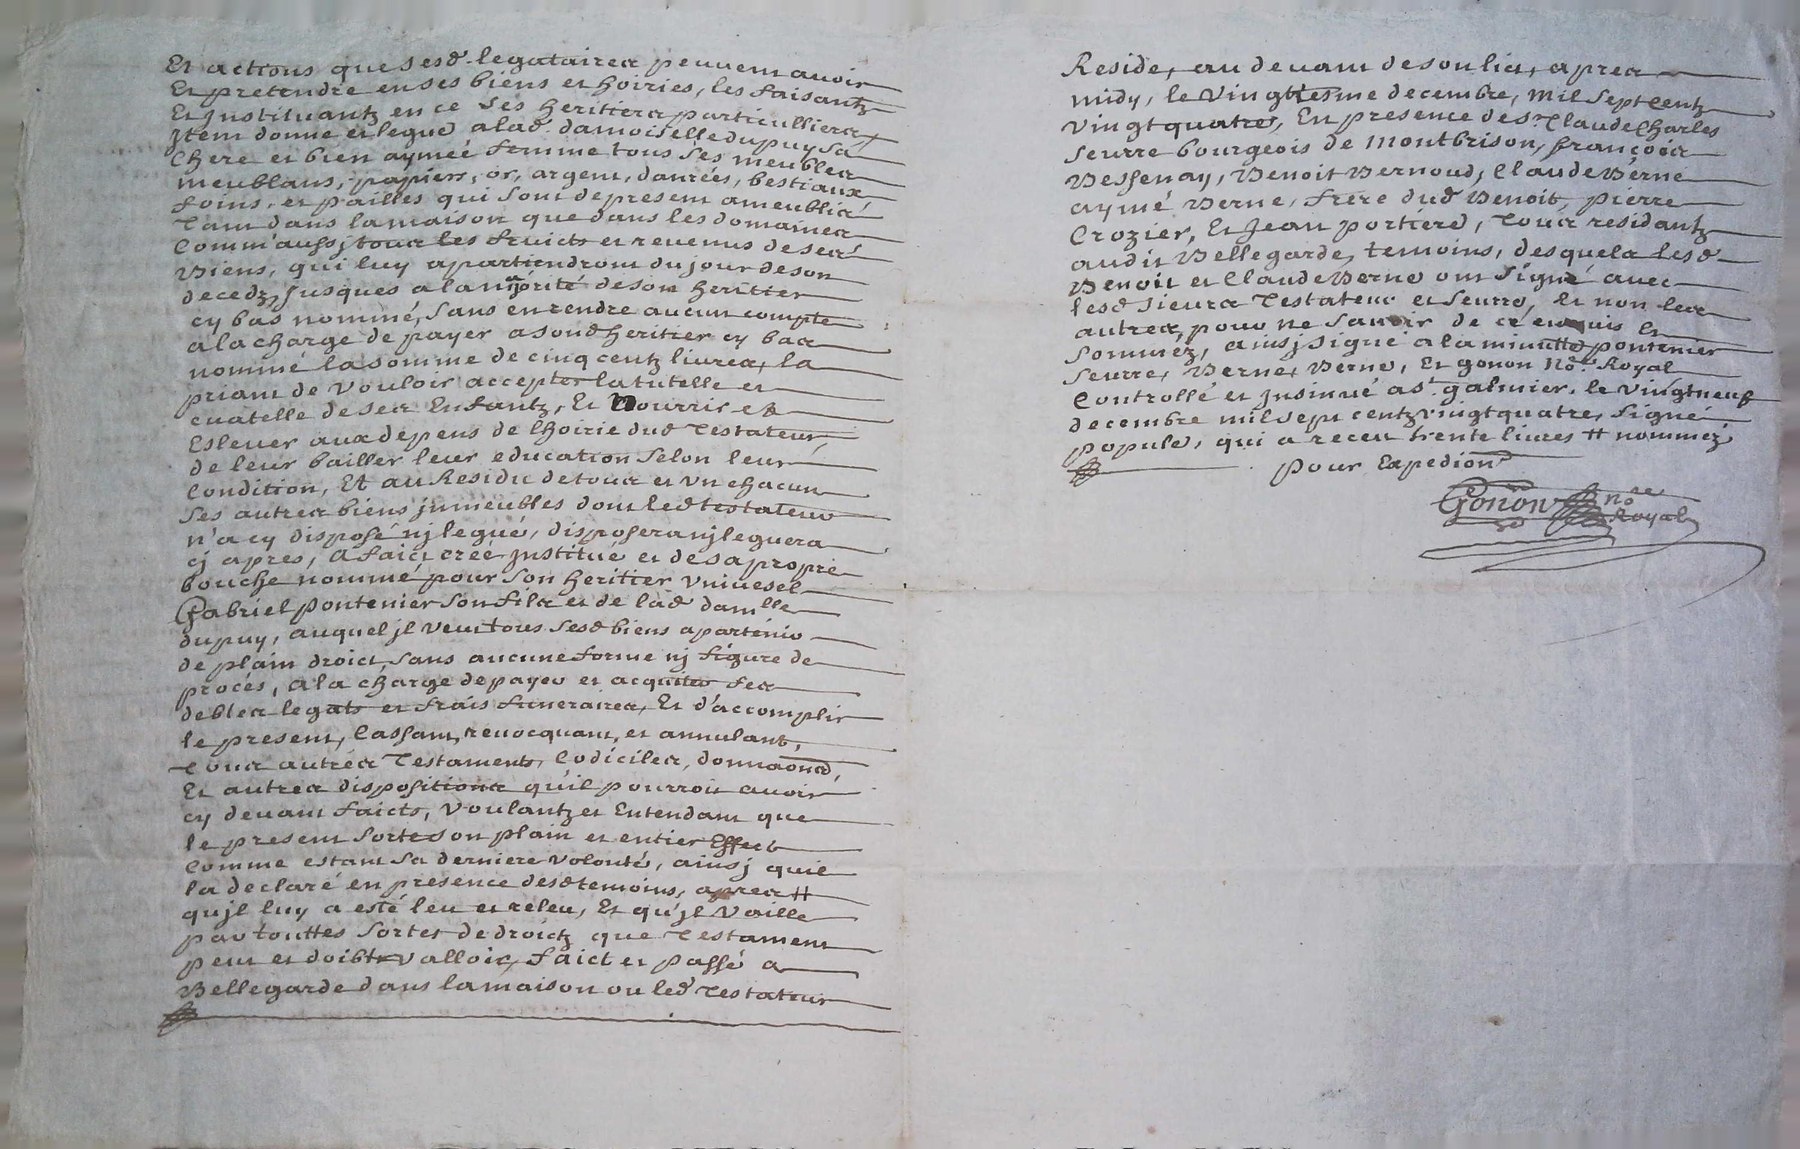 Et actions que sesd. legataires peuvent avoir
Et pretendre en ses biens et hoiries, les faisantz
Et Jnstituantz en ce ses heritiers particulliers,
Jtem donne et legue a lad. damoiselle dupuy sa
Chere et bien aymeé femme tous ses meubles
meublans, papiers, or, argent, danrées, bestiaux
foins, et pailles qui sont de present ameublis
Tant dans la maison que dans les domaines
Comm'aussj tous les fruicts et revenus de ses
Biens, qui luy apartiendront du jour de son
decedz, jusques a la majorité de son heritier
cy bas nommé, sans en rendre aucun compte
a la charge de payer a sond heritier cy bas
nommé la somme de cinq centz livres, la
priant de vouloir accepter la tutelle et
curatelle de ses Enfantz, Et Nourrir et
Eslever aux depens de lhoirie dud Testateur,
de leur bailler leur education selon leur
Condition, Et au Residu de tous et un chacun
ses autres biens jmmeubles dont led testateur
n'a cy disposé nj legué, disposera nj leguera
cj apres, a faict creé Jnstitué et de sa propre
bouche nommé pour son heritier universel
Gabriel pontenier son fils et de lad damlle
dupuy, auquel jl veut tous sesd biens apartenir
de plain droict sans aucune forme nj figure de
procés, a la charge de payer et acquiter ses
debtes legats et frais funeraires, Et d'accomplir
le present, Cassant, revocquant, et annulant,
Tous autres Testaments, Codiciles, donnaons,
Et autres dispositions qu'il pourroit avoir
cy devant faicts, voulantz et Entendant que
le present sorte son plain et entier Effect
Comme estant sa derniere volonté, ainsj qu'il
la declaré en presence desd temoins, apres #
qujl luy a esté leu et releu, Et qu'jl vaille
par touttes sortes de droictz que Testament
peut et doibt valloir, faict et passé a
Bellegarde dans la maison ou led Testateur
Reside, au devant de son lict, apres
midy, le vingtiesme decembre, mil sept centz
vingt quatre, En presence de sr. Claude Charles
seurre bourgeois de montbrison, françois
Bessenay, Benoit Bernoud, Claude Berne
aymé Berne, frere dud Benoit, pierre
Crozier, Et Jean portiere, Tous residantz
audit Bellegarde, temoins, desquels lesd
Benoit et Claude Berne ont signé avec
lesd sieurs Testateur et seurre, et non les
autres, pour ne savoir de ce enquis et
sommez, ainsj signé a la minutte pontenier
seurre, Berne, Berne, Et gonon No.re Royal
Controllé et Jnsinué a st. galmier, le vingtneuf
decembre mil sept centz vingt quatre, signé
popule, qui a receu trente livres # nommez
pour Expedion
Gonon no.re
Royal